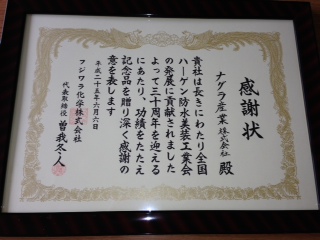 感謝状
ナグラ産業株式会社 殿
貴社は長きにわたり全国
ハーゲン防水美装工業会
の発展に貢献されました
よって三十周年を迎える
にあたり、功績をたたえ
記念品を贈り深く感謝の
意を表します
平成二十五年六月六日
フジワラ化学株式会社
代表取締役 曽我冬人